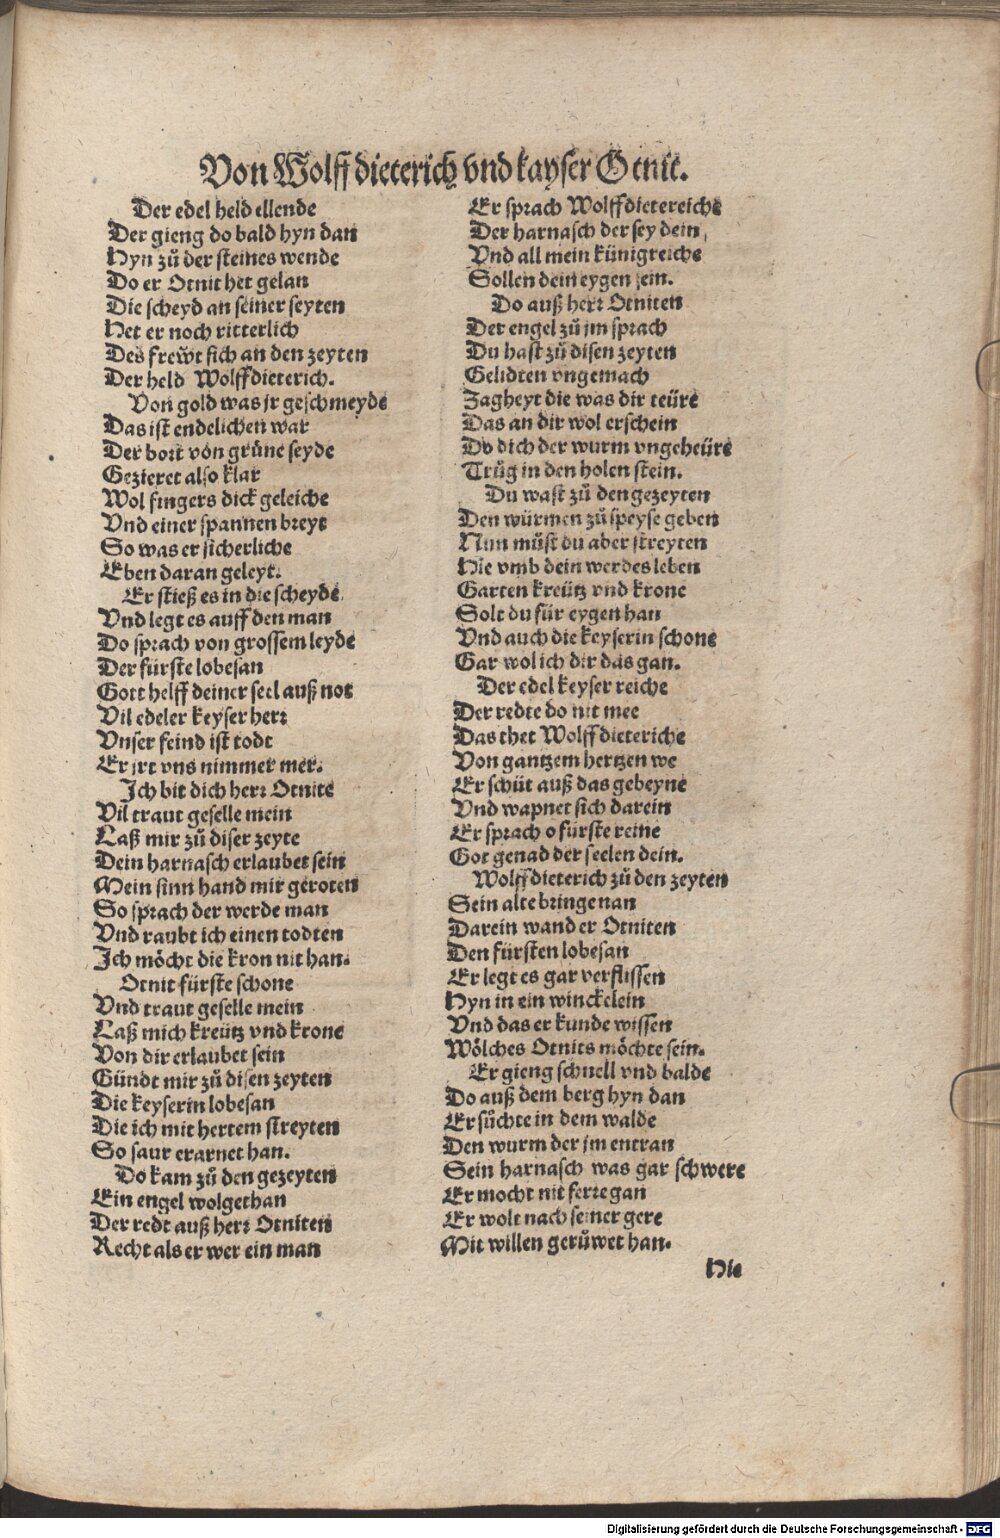 Von Wolff dieterich vnd kayser Otnit.
Der edel held ellende
Der gieng do bald hyn dan
Hyn zů der steines wende
Do er Otnit het gelan
Die scheyd an seiner seyten
Het er noch ritterlich
Des frewt sich an den zeyten
Der held Wolffdieterich.
Von gold was jr geschmeyde
Das ist endelichen war
Der bort von grüne seyde
Gezieret also klar
Wol fingers dick geleiche
Vnd einer spannen breyt
So was er sicherliche
Eben daran geleyt.
Er stieß es in die scheyde
Vnd legt es auff den man
Do sprach von grossem leyde
Der fürste lobesan
Gott helff deiner seel auß not
Vil edeler keyser herr
Vnser feind ist todt
Er jrt vns nimmer mer.
Ich bit dich herr Otnite
Vil traut geselle mein
Laß mir zů diser zeyte
Dein harnasch erlaubet sein
Mein sinn hand mir geroten
So sprach der werde man
Vnd raubt ich einen todten
Ich möcht die kron nit han.
Otnit fürste schone
Vnd traut geselle mein
Laß mich kreütz vnd krone
Von dir erlaubet sein
Gündt mir zů disen zeyten
Die keyserin lobesan
Die ich mit hertem streyten
So saur erarnet han.
Do kam zů den gezeyten
Ein engel wolgethan
Der redt auß herr Otniten
Recht als er wer ein man
Er sprach Wolffdietereiche
Der harnasch der sey dein
Vnd all mein künigreiche
Sollen dein eygen sein.
Do auß herr Otniten
Der engel zů jm sprach
Du hast zů disen zeyten
Gelidten vngemach
Zagheyt die was dir teüre
Das an dir wol erschein
Do dich der wurm vngeheüre
Trůg in den holen stein.
Du wast zů den gezeyten
Den würmen zů speyse geben
Nun můst du aber streyten
Hie vmb dein werdes leben
Garten kreütz vnd krone
Solt du für eygen han
Vnd auch die keyserin schone
Gar wol ich dir das gan.
Der edel keyser reiche
Der redte do nit mee
Das thet Wolff dieteriche
Von gantzem hertzen we
Er schüt auß das gebeyne
Vnd wapnet sich darein
Er sprach o fürste reine
Got genad der seelen dein.
Wolff dieterich zů den zeyten
Sein alte bringe nan
Darein wand er Otniten
Den fürsten lobesan
Er legt es gar verflissen
Hyn in ein winckelein
Vnd das er kunde wissen
Wölches Otnits möchte sein.
Er gieng schnell vnd balde
Do auß dem berg hyn dan
Er sůchte in dem walde
Den wurm der jm entran
Sein harnasch was gar schwere
Er mocht nit ferre gan
Er wolt nach seiner gere
Mit willen gerůwet han.
Hie
Digitalisierung gefördert durch die Deutsche Forschungsgemeinschaft - DFG